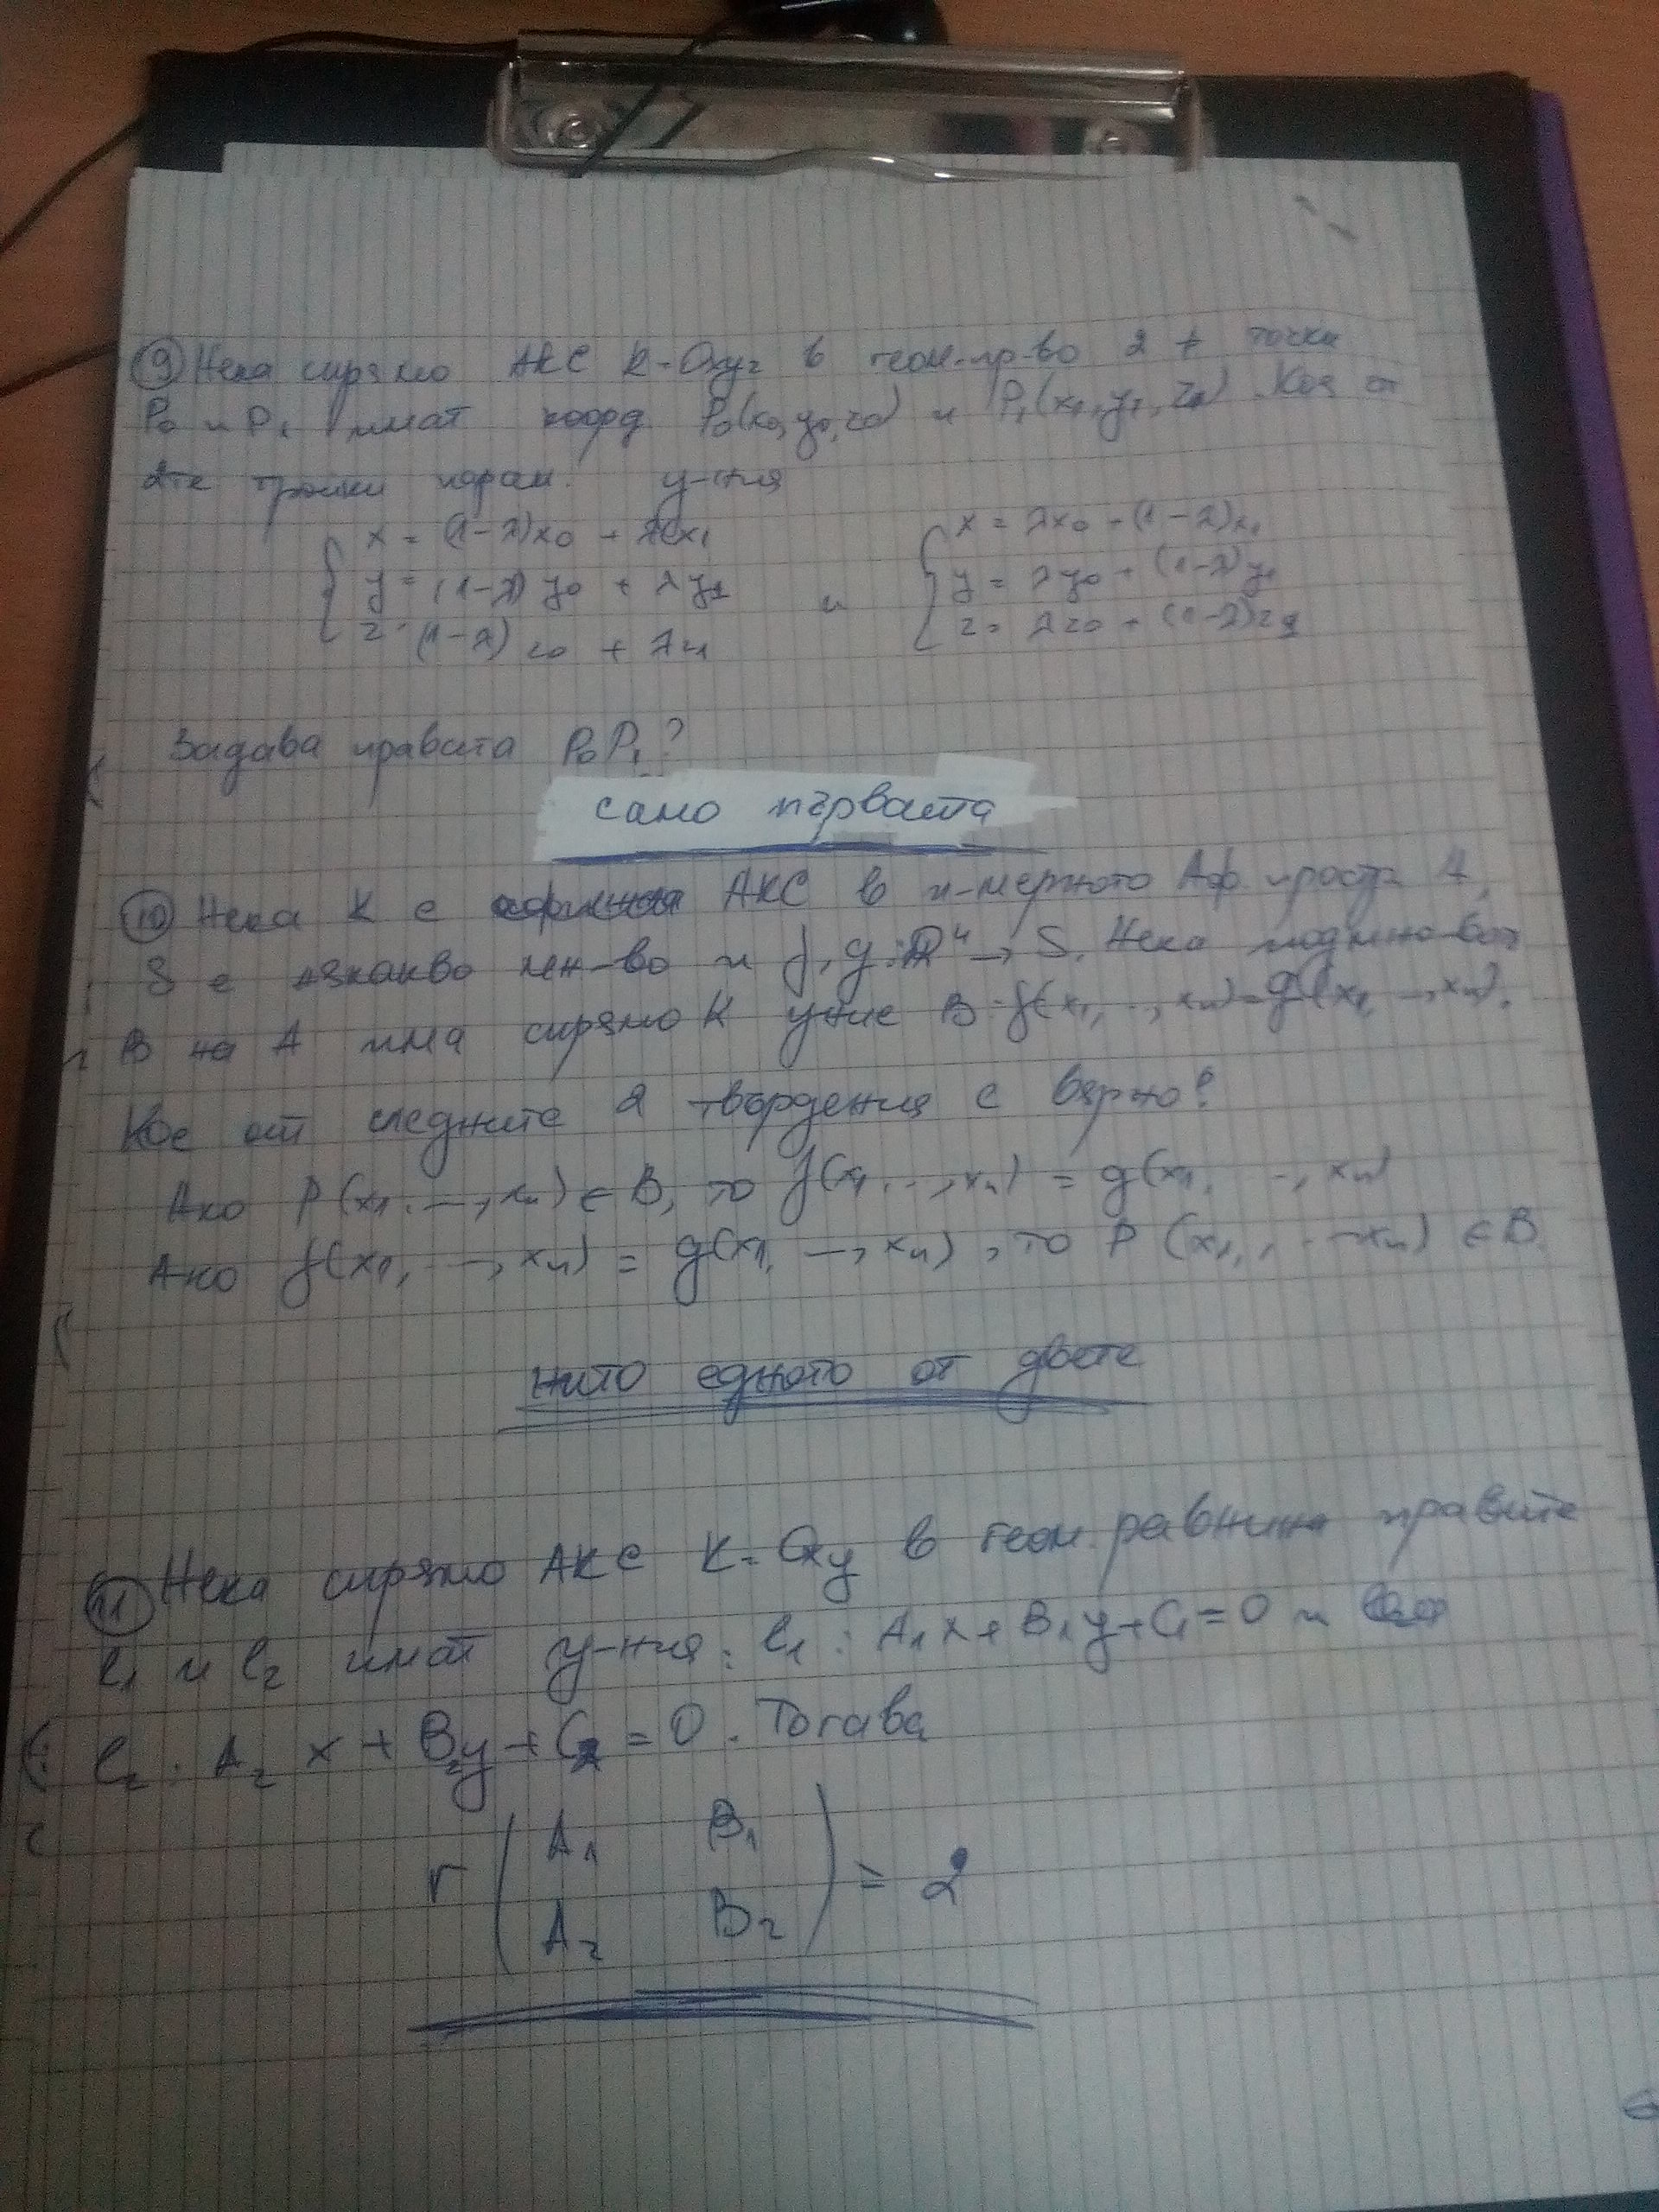 ⑨ Нека спрямо АКС K=Oxyz в геом. пр-во 2 ≠ точки
P₀ и P₁ имат коорд. P₀(x₀, y₀, z₀) и P₁(x₁, y₁, z₁). Коя от
двете тройки парам. у-ния
{ x = (1-λ)x₀ + λx₁
{ y = (1-λ)y₀ + λy₁
{ z = (1-λ)z₀ + λz₁
и
{ x = λx₀ + (1-λ)x₁
{ y = λy₀ + (1-λ)y₁
{ z = λz₀ + (1-λ)z₁
задава правата P₀P₁?
само първата
⑩ Нека K е АКС в n-мерното Аф. простр. A,
S е някакво мн-во и f, g: ℝⁿ → S. Нека подмножеството
B на A има спрямо K у-ние B: f(x₁, ..., xₙ) = g(x₁, ..., xₙ).
Кое от следните 2 твърдения е вярно?
Ако P(x₁, ..., xₙ) ∈ B, то f(x₁, ..., xₙ) = g(x₁, ..., xₙ)
Ако f(x₁, ..., xₙ) = g(x₁, ..., xₙ), то P(x₁, ..., xₙ) ∈ B
нито едното от двете
⑪ Нека спрямо АКС K=Oxy в геом. равнина правите
l₁ и l₂ имат у-ния: l₁: A₁x + B₁y + C₁ = 0 и
l₂: A₂x + B₂y + C₂ = 0. Тогава
r ( A₁ B₁ )
( A₂ B₂ ) = 2